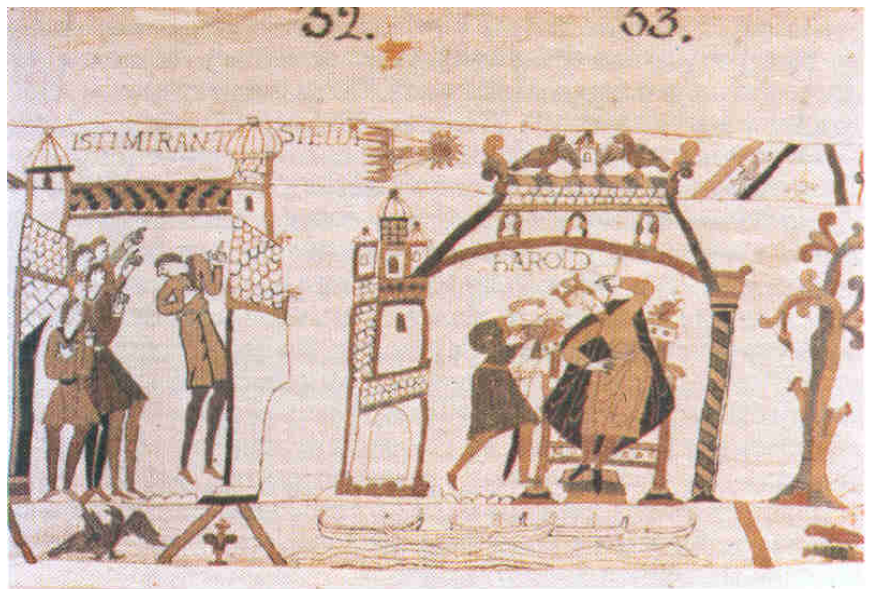 32. 33.
ISTI MIRANT STELLA
HAROLD